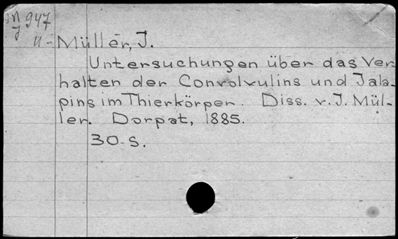 IV
J 947
u-
Müller, J.
Untersuchungen über das Ver-
halten der Convolvulins und Jala-
pins im Thierkörper. Diss. v. J. Mül-
ler. Dorpat, 1885.
30 S.